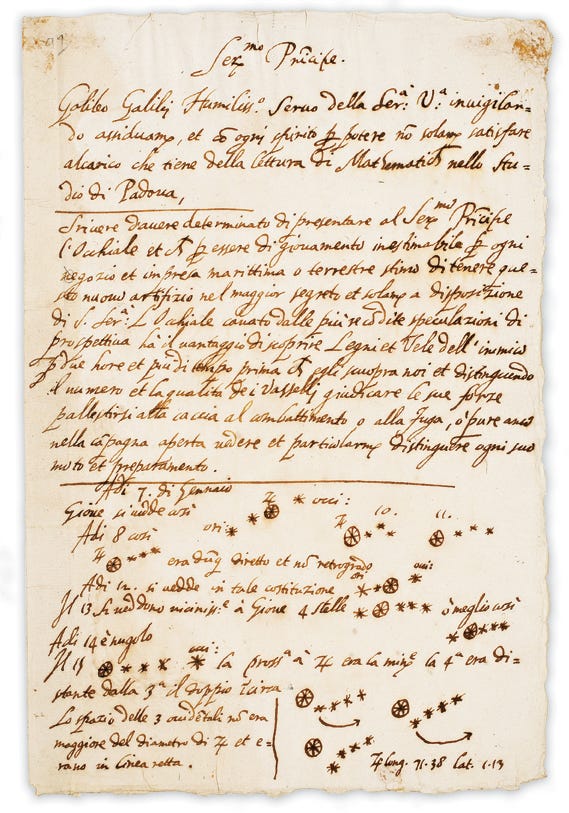 Ser.mo Prīcipe.
Galileo Galilei Humiliss.o Servo della Ser.a V.a invigilan-
do assiduam.e, et cō ogni spirito p potere nō solam.e satisfare
alcarico che tiene della lettura di Mathematiche nello Stu-
dio di Padova,
Scrivere d'avere determinato di presentare al Ser.mo Prīcipe
l'Occhiale et che p essere di giovamento inestimabile p ogni
negozio et impresa marittima o terrestre stimo di tenere que-
sto nuovo artifizio nel maggior segreto et solam.e a disposizione
di S. Ser.a L'Occhiale cavato dalle più recōdite speculazioni di
prospettiva hà il vantaggio di scoprire Legni et Vele dell'inimico
p due hore et più di tempo prima che egli scuopra noi et distinguendo
il numero et la qualità dei Vasselli giudicare le sue forze
pallestirsi alla caccia al combattimento o alla fuga, ò pure anco
nella cāpagna aperta vedere et particolarm.e distinguere ogni suo
moto et preparamento.
Adi 7. di Gennaio
Gioue si vedde così ♃ occi:
Adi 8 così ori: ♃ 10. 11.
♃ era dūq diretto et nō retrogrado
Adi 12. si vedde in tale costituzione ori occi:
Il 13 si veddono viciniss.e à Giove 4 stelle ò meglio così
Adi 14 è nugolo
Il 15 occi: la pross.a à ♃ era la min.e la 4.a era di-
stante dalla 3.a il doppio Tcirca
Lo spazio delle 3 occidētali nō era
maggiore del diametro di ♃ et e-
rano in linea retta.
♃ long. 71.38 lat. 1.13